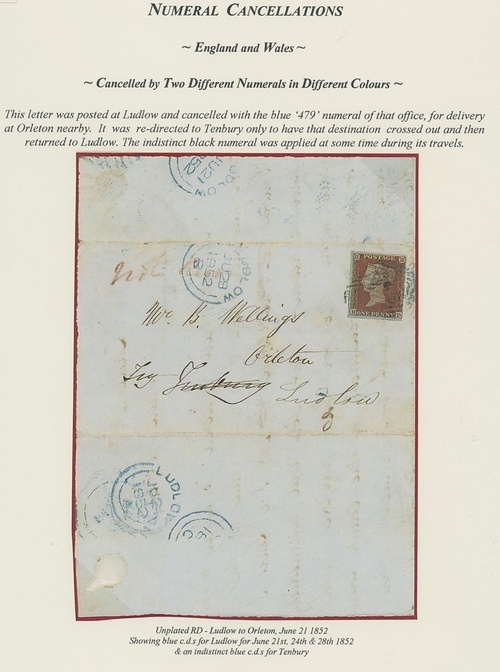 NUMERAL CANCELLATIONS
~ ENGLAND AND WALES ~
~ CANCELLED BY TWO DIFFERENT NUMERALS IN DIFFERENT COLOURS ~
This letter was posted at Ludlow and cancelled with the blue ‘479’ numeral of that office, for delivery
at Orleton nearby. It was re-directed to Tenbury only to have that destination crossed out and then
returned to Ludlow. The indistinct black numeral was applied at some time during its travels.
LUDLOW
JU21
1852
LUDLOW
JU28
1852
B
POSTAGE
ONE PENNY
Mr. B. Wellings
Orleton
Try Tenbury Ludlow
LUDLOW
1852
Unplated RD - Ludlow to Orleton, June 21 1852
Showing blue c.d.s for Ludlow for June 21st, 24th & 28th 1852
& an indistinct blue c.d.s for Tenbury